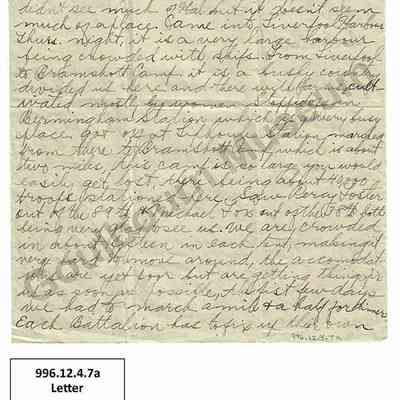 didn't see much of Hal but it doesn't seem
much of a place. Came into Liverpool Harbor
Thurs. night, it is a very large harbour
being crowded with ships. From Liverpool
to Bramshott Camp it is a bushy country
divided up here and there with cult-
ivated mostly by women. Stopped in
Birmingham Station, which is a very busy
place, got off at Station, marched
from there to Bramshott which is about
two miles, this camp is so large you would
easily get lost, there being about 40,000
troops stationed here. Saw Percy Foster
out of the 89th & Michael & out of the 78th both
being very glad to see us. We are crowded
in about in each tent, making it
very hard to move around, the accomodat-
are yet poor but are getting things
as soon as possible, the first few days
we had to march a mile & a half for dinner
Each Battalion has to fix up their own
996.12.4.7a
996.12.4.7a
Letter